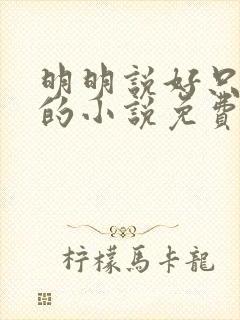 明明說好只
的小說免費
柠檬馬卡龍